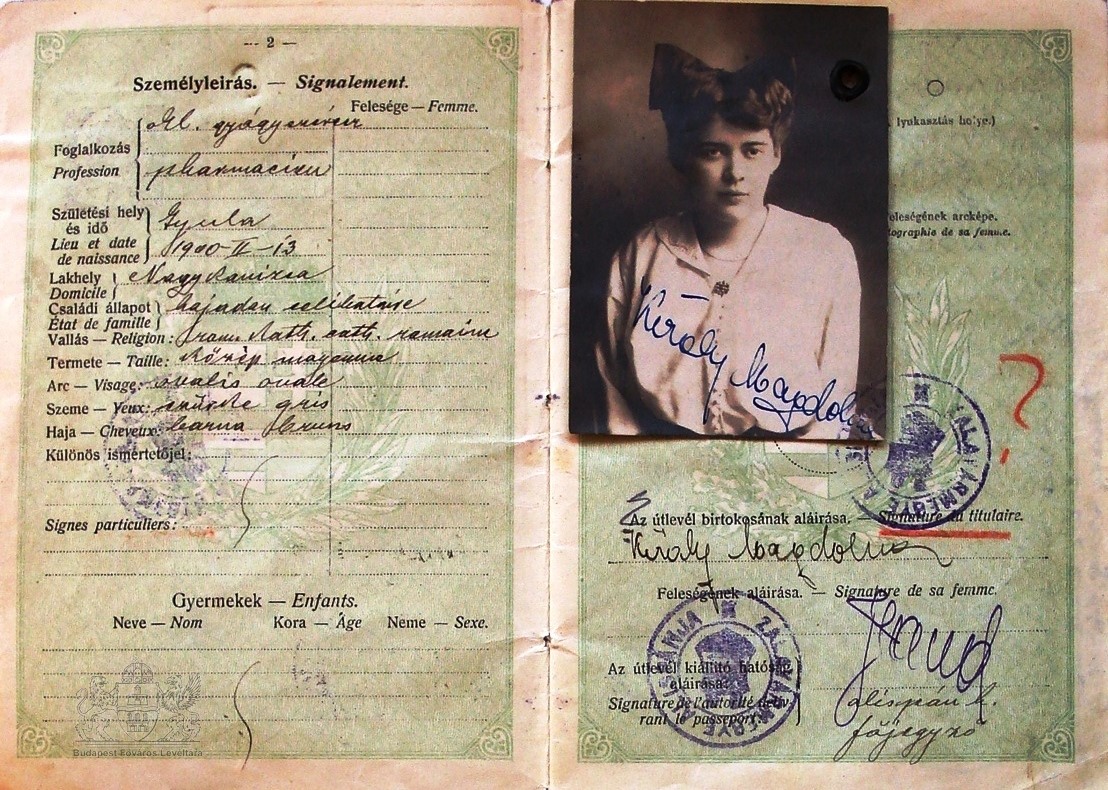 — 2 —
Személyleírás. — Signalement.
Felesége — Femme.
okl. gyógyszerész
Foglalkozás
Profession
pharmacien
Születési hely és idő
Lieu et date de naissance
Gyula
1900-II-13
Lakhely
Domicile
Nagykanizsa
Családi állapot
État de famille
hajadon celibataire
Vallás — Religion: róm. kath. cath. romaine
Termete — Taille: közép moyenne
Arc — Visage: ovális ovale
Szeme — Yeux: szürke gris
Haja — Cheveux: barna bruns
Különös ismertetőjel:
Signes particuliers:
Gyermekek — Enfants.
Neve — Nom Kora — Âge Neme — Sexe.
Budapest Főváros Levéltára
lyukasztás helye.)
eleségének arcképe.
tographie de sa femme.
Király Magdolna
?
Az útlevél birtokosának aláírása. — Signature du titulaire.
Király Magdolna
Feleségének aláírása. — Signature de sa femme.
Az útlevél kiállító hatóság aláírása:
Signature de l'autorité déliv
rant le passeport:
alispán h.
főjegyző